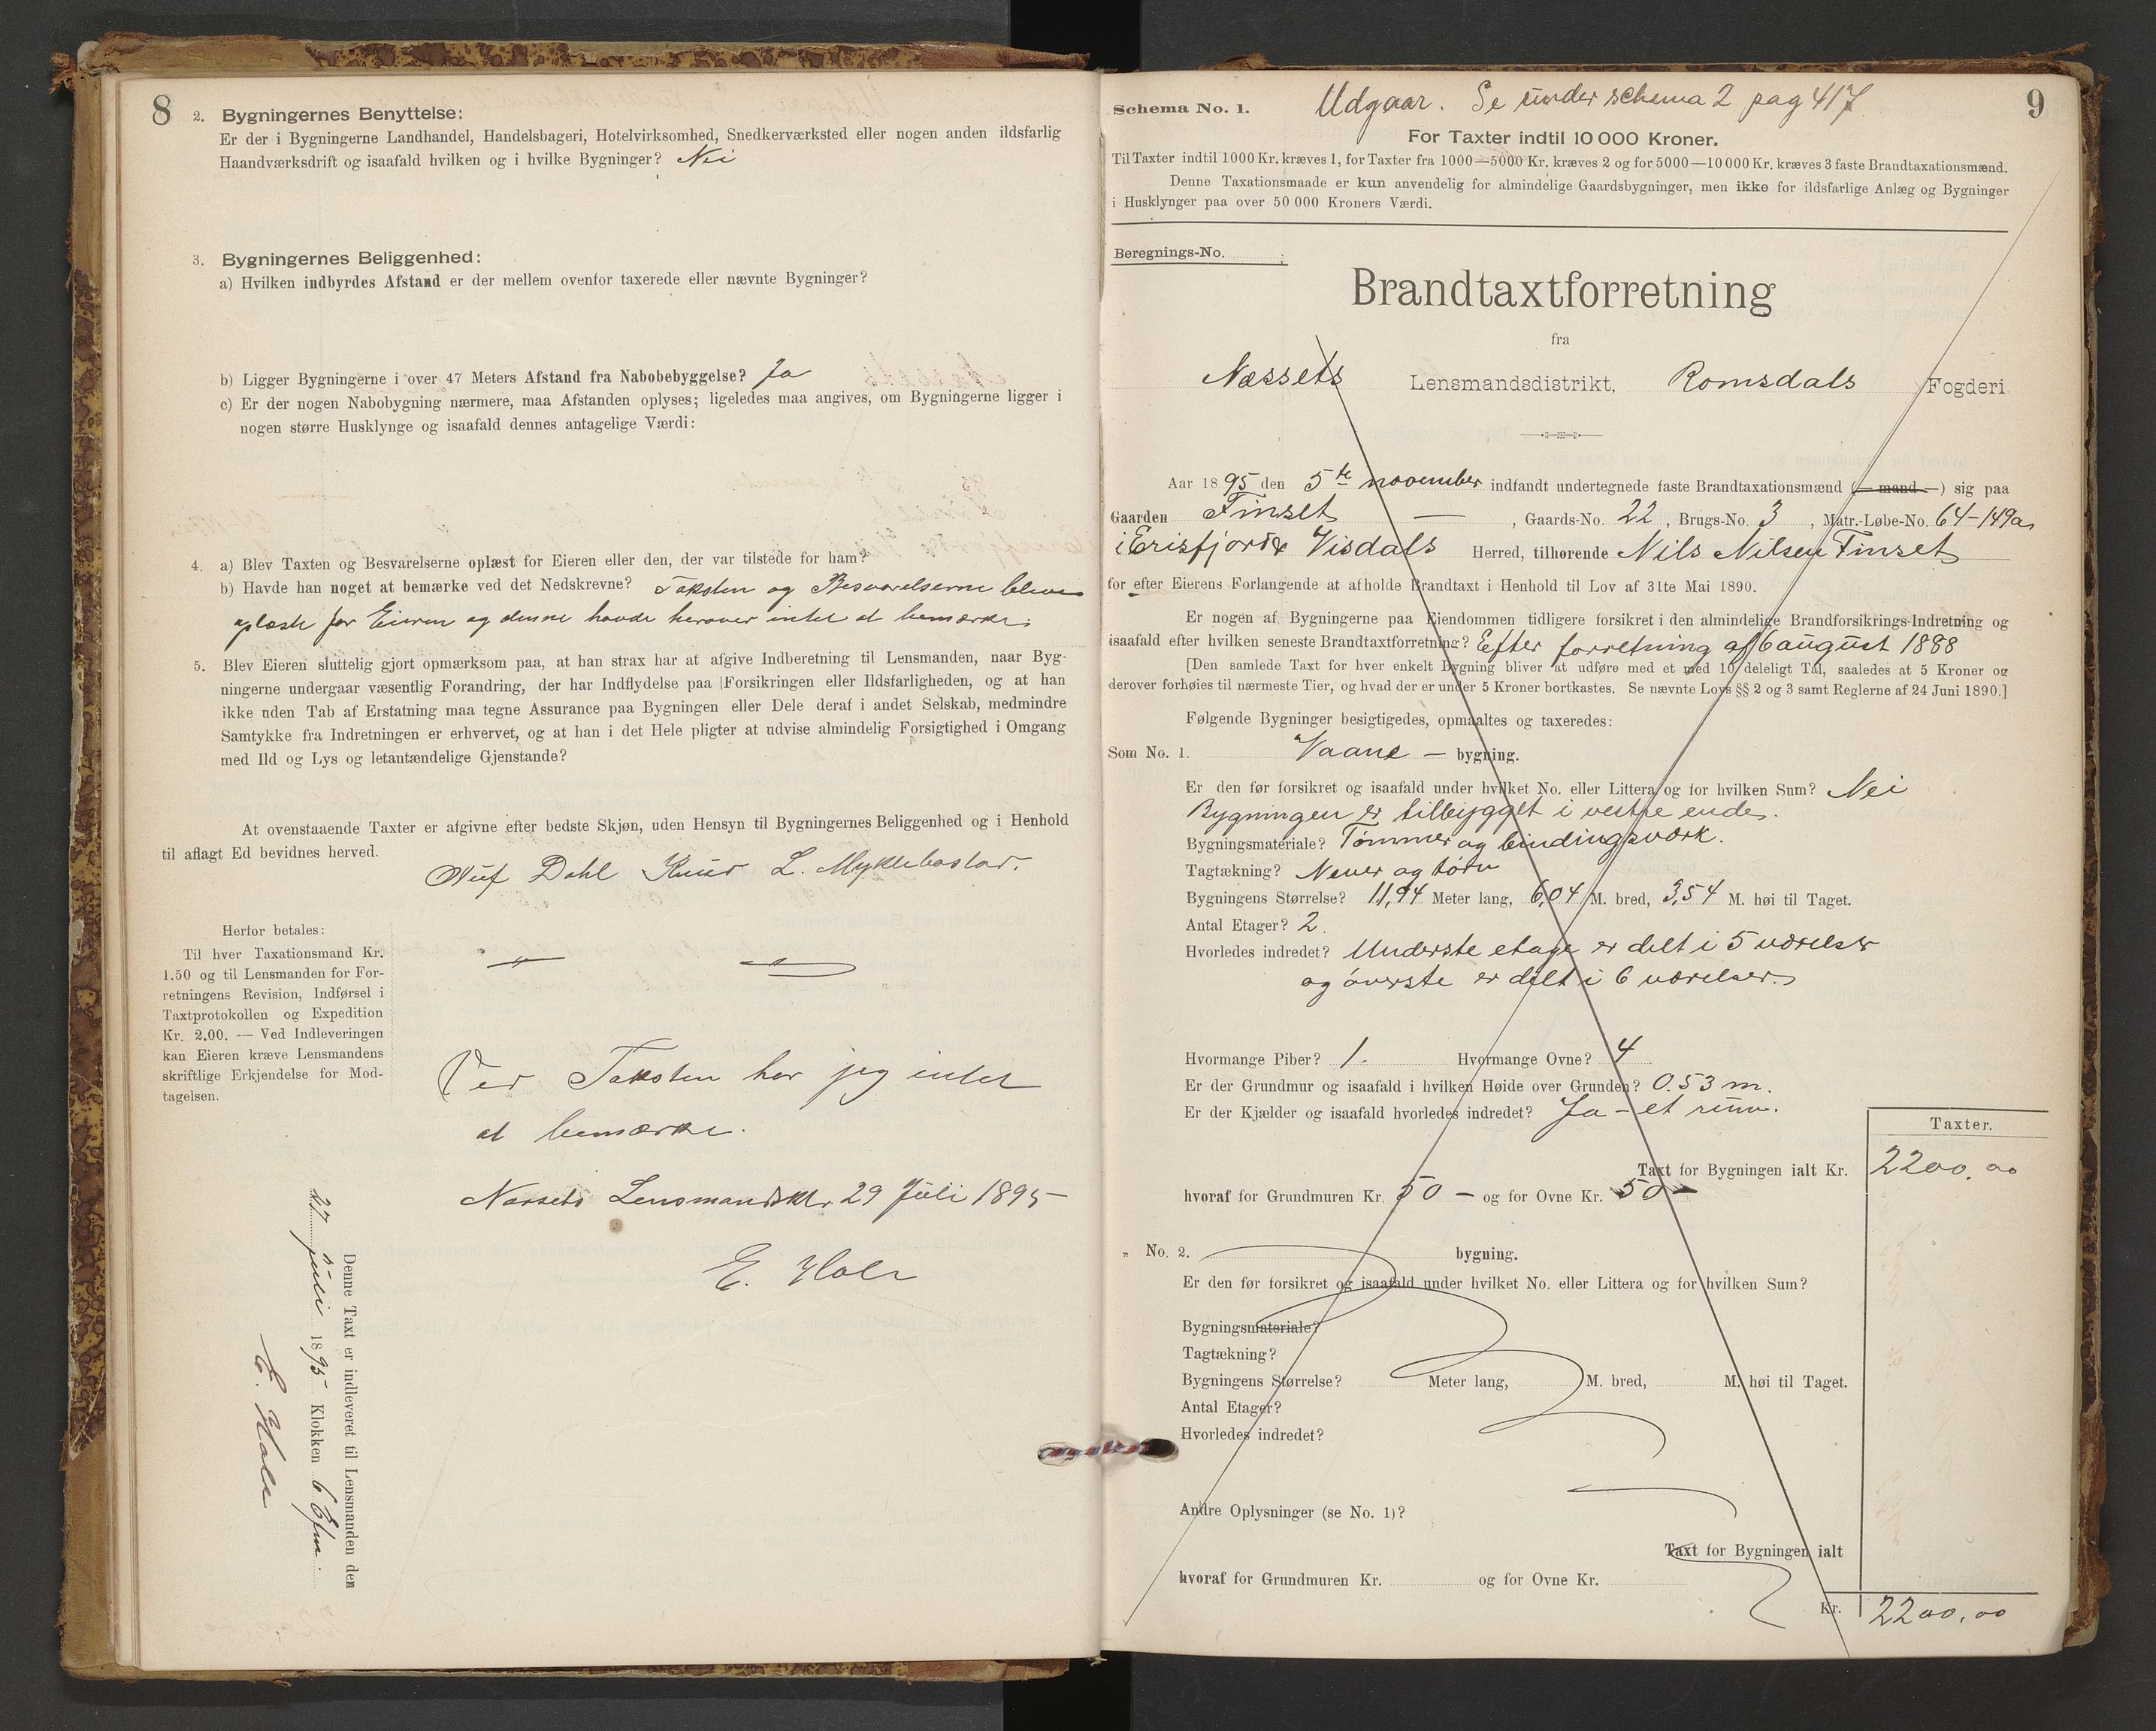 8
2. Bygningernes Benyttelse:
Er der i Bygningerne Landhandel, Handelsbageri, Hotelvirksomhed, Snedkerværksted eller nogen anden ildsfarlig
Haandværksdrift og isaafald hvilken og i hvilke Bygninger? Nei
3. Bygningernes Beliggenhed:
a) Hvilken indbyrdes Afstand er der mellem ovenfor taxerede eller nævnte Bygninger?
b) Ligger Bygningerne i over 47 Meters Afstand fra Nabobebyggelse? Ja
c) Er der nogen Nabobygning nærmere, maa Afstanden oplyses; ligeledes maa angives, om Bygningerne ligger i
nogen større Husklynge og isaafald dennes antagelige Værdi:
4. a) Blev Taxten og Besvarelserne oplæst for Eieren eller den, der var tilstede for ham?
b) Havde han noget at bemærke ved det Nedskrevne? Taksten og Besvarelserne bleve
oplæste for Eieren og denne havde herover intet at bemærke.
5. Blev Eieren sluttelig gjort opmærksom paa, at han strax har at afgive Indberetning til Lensmanden, naar Byg-
ningerne undergaar væsentlig Forandring, der har Indflydelse paa Forsikringen eller Ildsfarligheden, og at han
ikke uden Tab af Erstatning maa tegne Assurance paa Bygningen eller Dele deraf i andet Selskab, medmindre
Samtykke fra Indretningen er erhvervet, og at han i det Hele pligter at udvise almindelig Forsigtighed i Omgang
med Ild og Lys og letantændelige Gjenstande?
At ovenstaaende Taxter er afgivne efter bedste Skjøn, uden Hensyn til Bygningernes Beliggenhed og i Henhold
til aflagt Ed bevidnes herved.
Oluf Dahl Knud L. Myklebostad.
Herfor betales:
Til hver Taxationsmand Kr.
1.50 og til Lensmanden for For-
retningens Revision, Indførsel i
Taxtprotokollen og Expedition
Kr. 2.00. — Ved Indleveringen
kan Eieren kræve Lensmandens
skriftlige Erkjendelse for Mod-
tagelsen.
Ved Taksten har jeg intet
at bemærke.
Næssets Lensmandsktr 29 Juli 1895 –
E. Hole
Denne Taxt er indleveret til Lensmanden den
27 juli 1895 Klokken 6 Efm.
E. Hole
9
Schema No. 1. Udgaar. Se under schema 2 pag 417
For Taxter indtil 10 000 Kroner.
Til Taxter indtil 1000 Kr. kræves 1, for Taxter fra 1000—5000 Kr. kræves 2 og for 5000—10 000 Kr. kræves 3 faste Brandtaxationsmænd.
Denne Taxationsmaade er kun anvendelig for almindelige Gaardsbygninger, men ikke for ildsfarlige Anlæg og Bygninger
i Husklynger paa over 50 000 Kroners Værdi.
Beregnings-No. ;
Brandtaxtforretning
fra
Næssets Lensmandsdistrikt, Romsdals Fogderi
Aar 1895 den 5te november indfandt undertegnede faste Brandtaxationsmænd (— mand —) sig paa
Gaarden Finset — , Gaards-No. 22 , Brugs-No. 3 , Matr.-Løbe-No. 64-149a,
i Erisfjord & Visdals Herred, tilhørende Nils Nilsen Finset
for efter Eierens Forlangende at afholde Brandtaxt i Henhold til Lov af 31te Mai 1890.
Er nogen af Bygningerne paa Eiendommen tidligere forsikret i den almindelige Brandforsikrings-Indretning og
isaafald efter hvilken seneste Brandtaxtforretning? Efter forretning af 6 august 1888
[Den samlede Taxt for hver enkelt Bygning bliver at udføre med et med 10 deleligt Tal, saaledes at 5 Kroner og
derover forhøies til nærmeste Tier, og hvad der er under 5 Kroner bortkastes. Se nævnte Lovs §§ 2 og 3 samt Reglerne af 24 Juni 1890.]
Følgende Bygninger besigtigedes, opmaaltes og taxeredes:
Som No. 1. Vaane – bygning.
Er den før forsikret og isaafald under hvilket No. eller Littera og for hvilken Sum? Nei
Bygningen er tilbygget i vestre ende.
Bygningsmateriale? Tømmer og bindingsværk.
Tagtækning? Never og tørv
Bygningens Størrelse? 11,94 Meter lang, 6,04 M. bred, 3,54 M. høi til Taget.
Antal Etager? 2.
Hvorledes indredet? Underste etage er delt i 5 værelser
og øverste er delt i 6 værelser.
Hvormange Piber? 1. Hvormange Ovne? 4
Er der Grundmur og isaafald i hvilken Høide over Grunden? 0.53 m.
Er der Kjælder og isaafald hvorledes indredet? Ja – et rum.
Taxter.
Taxt for Bygningen ialt Kr. 2200.00
hvoraf for Grundmuren Kr. 50 – og for Ovne Kr. 50 –
„ No. 2. bygning.
Er den før forsikret og isaafald under hvilket No. eller Littera og for hvilken Sum?
Bygningsmateriale?
Tagtækning?
Bygningens Størrelse? Meter lang, M. bred, M. høi til Taget.
Antal Etager?
Hvorledes indredet?
Andre Oplysninger (se No. 1)?
Taxt for Bygningen ialt
hvoraf for Grundmuren Kr. og for Ovne Kr.
Kr. 2200.00